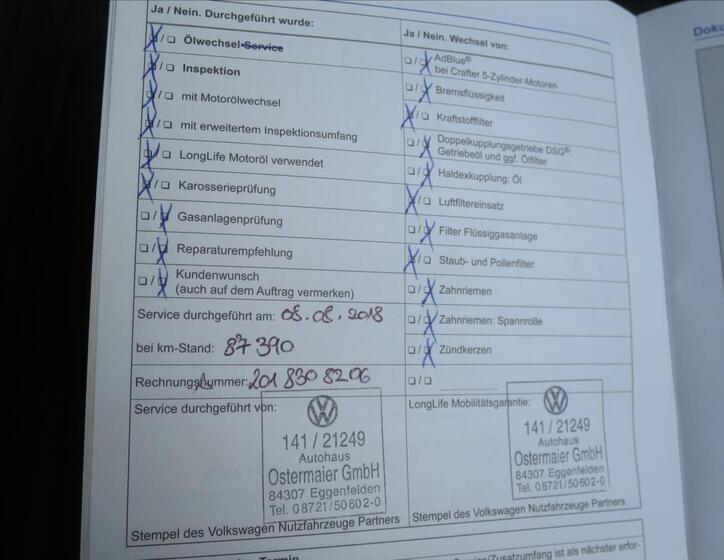 Ja / Nein. Durchgeführt wurde:
☒ / ☐ Ölwechsel-Service
☒ / ☐ Inspektion
☒ / ☐ mit Motorölwechsel
☒ / ☐ mit erweitertem Inspektionsumfang
☒ / ☐ LongLife Motoröl verwendet
☒ / ☐ Karosserieprüfung
☐ / ☒ Gasanlagenprüfung
☐ / ☒ Reparaturempfehlung
☐ / ☒ Kundenwunsch
(auch auf dem Auftrag vermerken)
Service durchgeführt am: 08.08.2018
bei km-Stand: 87 390
Rechnungsnummer: 201 830 8206
Service durchgeführt von:
141 / 21249
Autohaus
Ostermaier GmbH
84307 Eggenfelden
Tel. 0 87 21 / 5 06 02-0
Stempel des Volkswagen Nutzfahrzeuge Partners
Ja / Nein. Wechsel von:
☐ / ☒ AdBlue®
bei Crafter 5-Zylinder-Motoren
☐ / ☒ Bremsflüssigkeit
☒ / ☐ Kraftstofffilter
☐ / ☒ Doppelkupplungsgetriebe DSG®:
Getriebeöl und ggf. Ölfilter
☐ / ☒ Haldexkupplung: Öl
☒ / ☐ Luftfiltereinsatz
☐ / ☒ Filter Flüssiggasanlage
☒ / ☐ Staub- und Pollenfilter
☐ / ☒ Zahnriemen
☐ / ☒ Zahnriemen: Spannrolle
☐ / ☒ Zündkerzen
☐ / ☐ ....................
LongLife Mobilitätsgarantie:
141 / 21249
Autohaus
Ostermaier GmbH
84307 Eggenfelden
Tel. 0 87 21 / 5 06 02-0
Stempel des Volkswagen Nutzfahrzeuge Partners
Termin
/Zusatzumfang ist als nächster erfor-
Doku